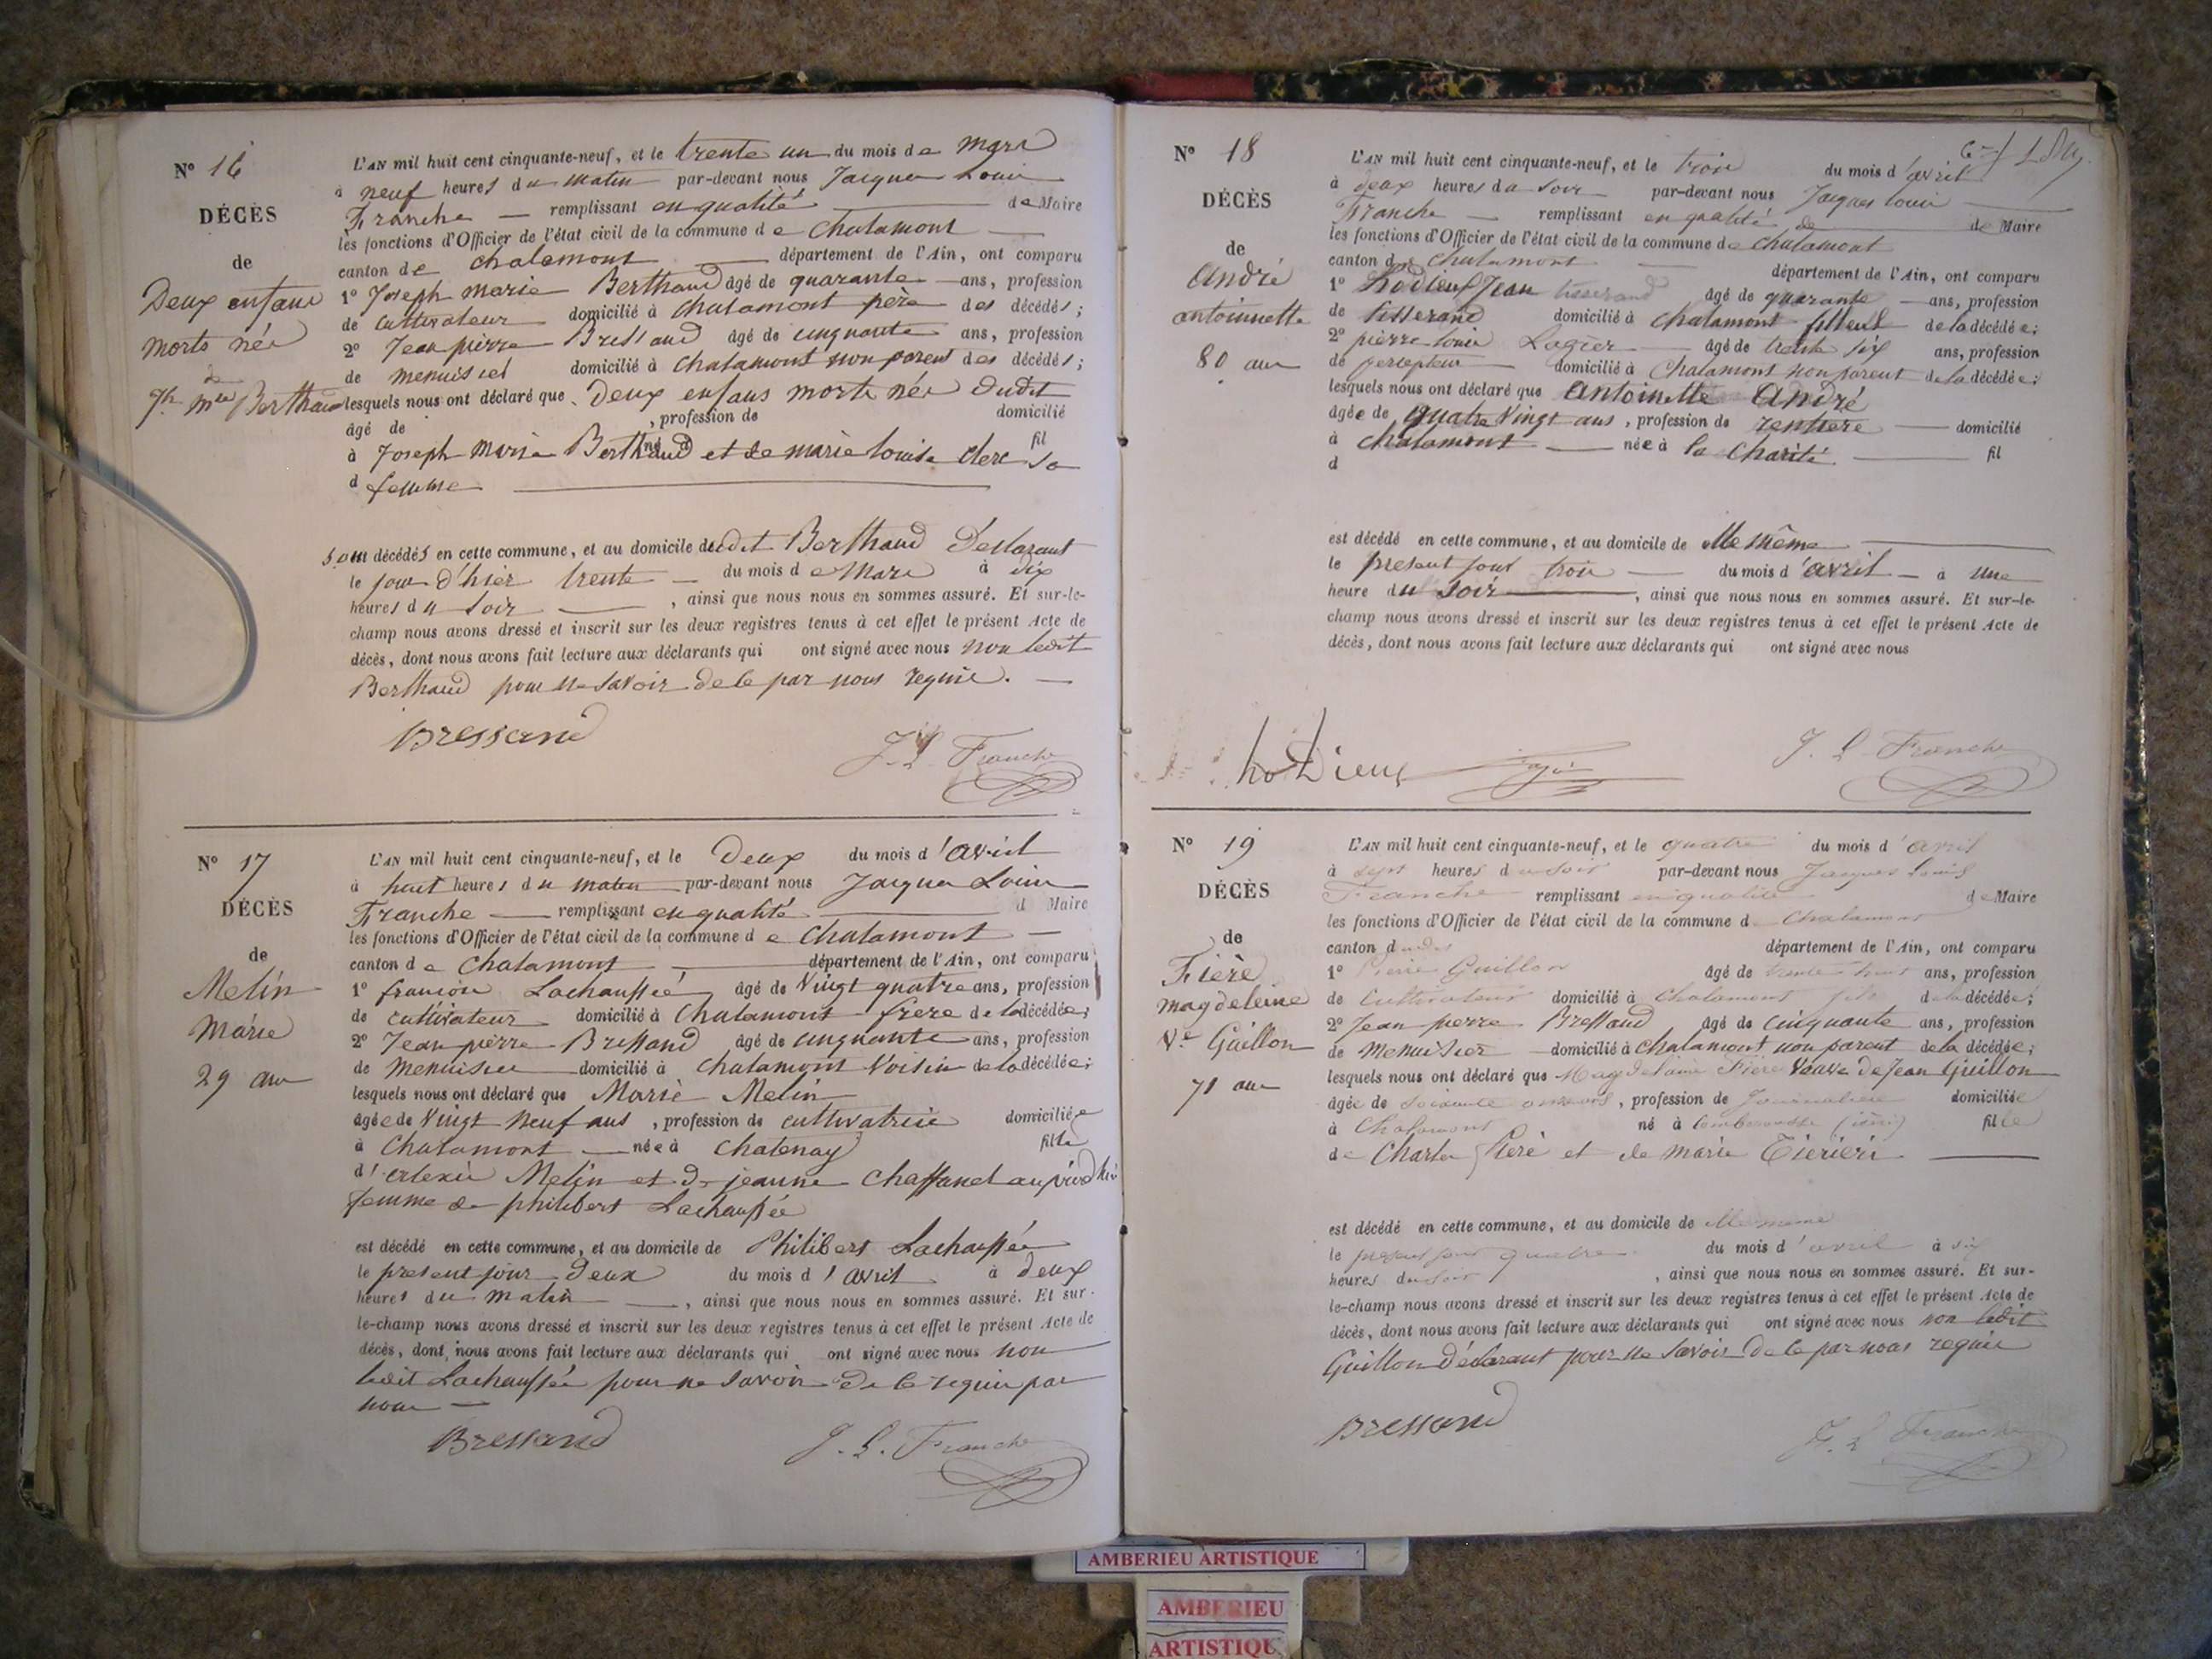 N° 16
DÉCÈS
de
Deux enfans
morts nés
de
Jph mie Berthaud
L'AN mil huit cent cinquante-neuf, et le trente un du mois de mars
à neuf heures du matin par-devant nous Jacques Louis
Franche — remplissant en qualité de Maire
les fonctions d'Officier de l'état civil de la commune de Chalamont
canton de chalamont département de l'Ain, ont comparu
1° Joseph marie Berthaud âgé de quarante ans, profession
de cultivateur domicilié à Chalamont père des décédés;
2° Jean pierre Bressand âgé de cinquante ans, profession
de menuisier domicilié à Chalamont non parent des décédés;
lesquels nous ont déclaré que Deux enfans morts nés dudit
âgé de , profession de domicilié
à Joseph Marie Berthaud né et de marie louise Clerc sa fil
d femme
sont décédés en cette commune, et au domicile dudit Berthaud Déclarant
le jour d'hier trente du mois de Mars à dix
heures du soir , ainsi que nous nous en sommes assuré. Et sur-le-
champ nous avons dressé et inscrit sur les deux registres tenus à cet effet le présent Acte de
décès, dont nous avons fait lecture aux déclarants qui ont signé avec nous non ledit
Berthaud pour ne savoir de ce par nous requis.
Bressand J. L. Franche
N° 17
DÉCÈS
de
Melin
Marie
29 ans
L'AN mil huit cent cinquante-neuf, et le Deux du mois d'avril
à huit heures du matin par-devant nous Jacques Louis
Franche — remplissant en qualité d Maire
les fonctions d'Officier de l'état civil de la commune de Chalamont
canton de Chalamont département de l'Ain, ont comparu
1° françois Lachaussée âgé de Vingt quatre ans, profession
de cultivateur domicilié à Chalamont frere de la décédée;
2° Jean pierre Bressand âgé de cinquante ans, profession
de menuisier domicilié à Chalamont Voisin de la décédée;
lesquels nous ont déclaré que Marie Melin
âgée de Vingt neuf ans , profession de cultivatrice domiciliée
à Chalamont née à Chatenay fille
d' Melin et de jeanne Chaffanel
femme de philibert Lachaussée
est décédé en cette commune, et au domicile de Philibert Lachaussée
le présent jour deux du mois d'avril à deux
heures du matin , ainsi que nous nous en sommes assuré. Et sur-
le-champ nous avons dressé et inscrit sur les deux registres tenus à cet effet le présent Acte de
décès, dont nous avons fait lecture aux déclarants qui ont signé avec nous non
ledit Lachaussée pour ne savoir de ce requis par
nous
Bressand J. L. Franche
N° 18
DÉCÈS
de
André
antoinnette
80 ans
L'AN mil huit cent cinquante-neuf, et le trois du mois d'avril
à deux heures du soir par-devant nous Jacques louis
Franche — remplissant en qualité de de Maire
les fonctions d'Officier de l'état civil de la commune de Chalamont
canton de Chalamont département de l'Ain, ont comparu
1° Hodieux Jean tisserand âgé de quarante ans, profession
de tisserand domicilié à Chalamont filleul de la décédée;
2° pierre louis Lagier âgé de trente six ans, profession
de percepteur domicilié à Chalamont non parent de la décédée;
lesquels nous ont déclaré que Antoinette André
âgée de quatre Vingt ans , profession de rentiere domicilié
à Chalamont née à la Charité fil
d
est décédé en cette commune, et au domicile de elle même
le présent jour trois du mois d'avril à une
heure du soir , ainsi que nous nous en sommes assuré. Et sur-le-
champ nous avons dressé et inscrit sur les deux registres tenus à cet effet le présent Acte de
décès, dont nous avons fait lecture aux déclarants qui ont signé avec nous
hodieux J. L. Franche
N° 19
DÉCÈS
de
Fière
magdeleine
Ve Guillon
71 ans
L'AN mil huit cent cinquante-neuf, et le quatre du mois d'avril
à sept heures du soir par-devant nous Jacques Louis
Franche remplissant en qualité de Maire
les fonctions d'Officier de l'état civil de la commune d Chalamont
canton dudit département de l'Ain, ont comparu
1° Pierre Guillon âgé de trente huit ans, profession
de cultivateur domicilié à Chalamont fils de la décédée;
2° Jean pierre Bressand âgé de cinquante ans, profession
de menuisier domicilié à Chalamont non parent de la décédée;
lesquels nous ont déclaré que Magdelaine Fière Veuve de Jean Guillon
âgée de soixante onze ans , profession de Journaliere domiciliée
à Chalamont né à (isère) fille
de Charles fière et de marie
est décédé en cette commune, et au domicile de elle même
le présent jour quatre du mois d'avril à six
heures du soir , ainsi que nous nous en sommes assuré. Et sur-
le-champ nous avons dressé et inscrit sur les deux registres tenus à cet effet le présent Acte de
décès, dont nous avons fait lecture aux déclarants qui ont signé avec nous non ledit
Guillon Déclarant pour ne savoir de ce par nous requis
Bressand J. L. Franche
AMBERIEU ARTISTIQUE
AMBERIEU
ARTISTIQUE